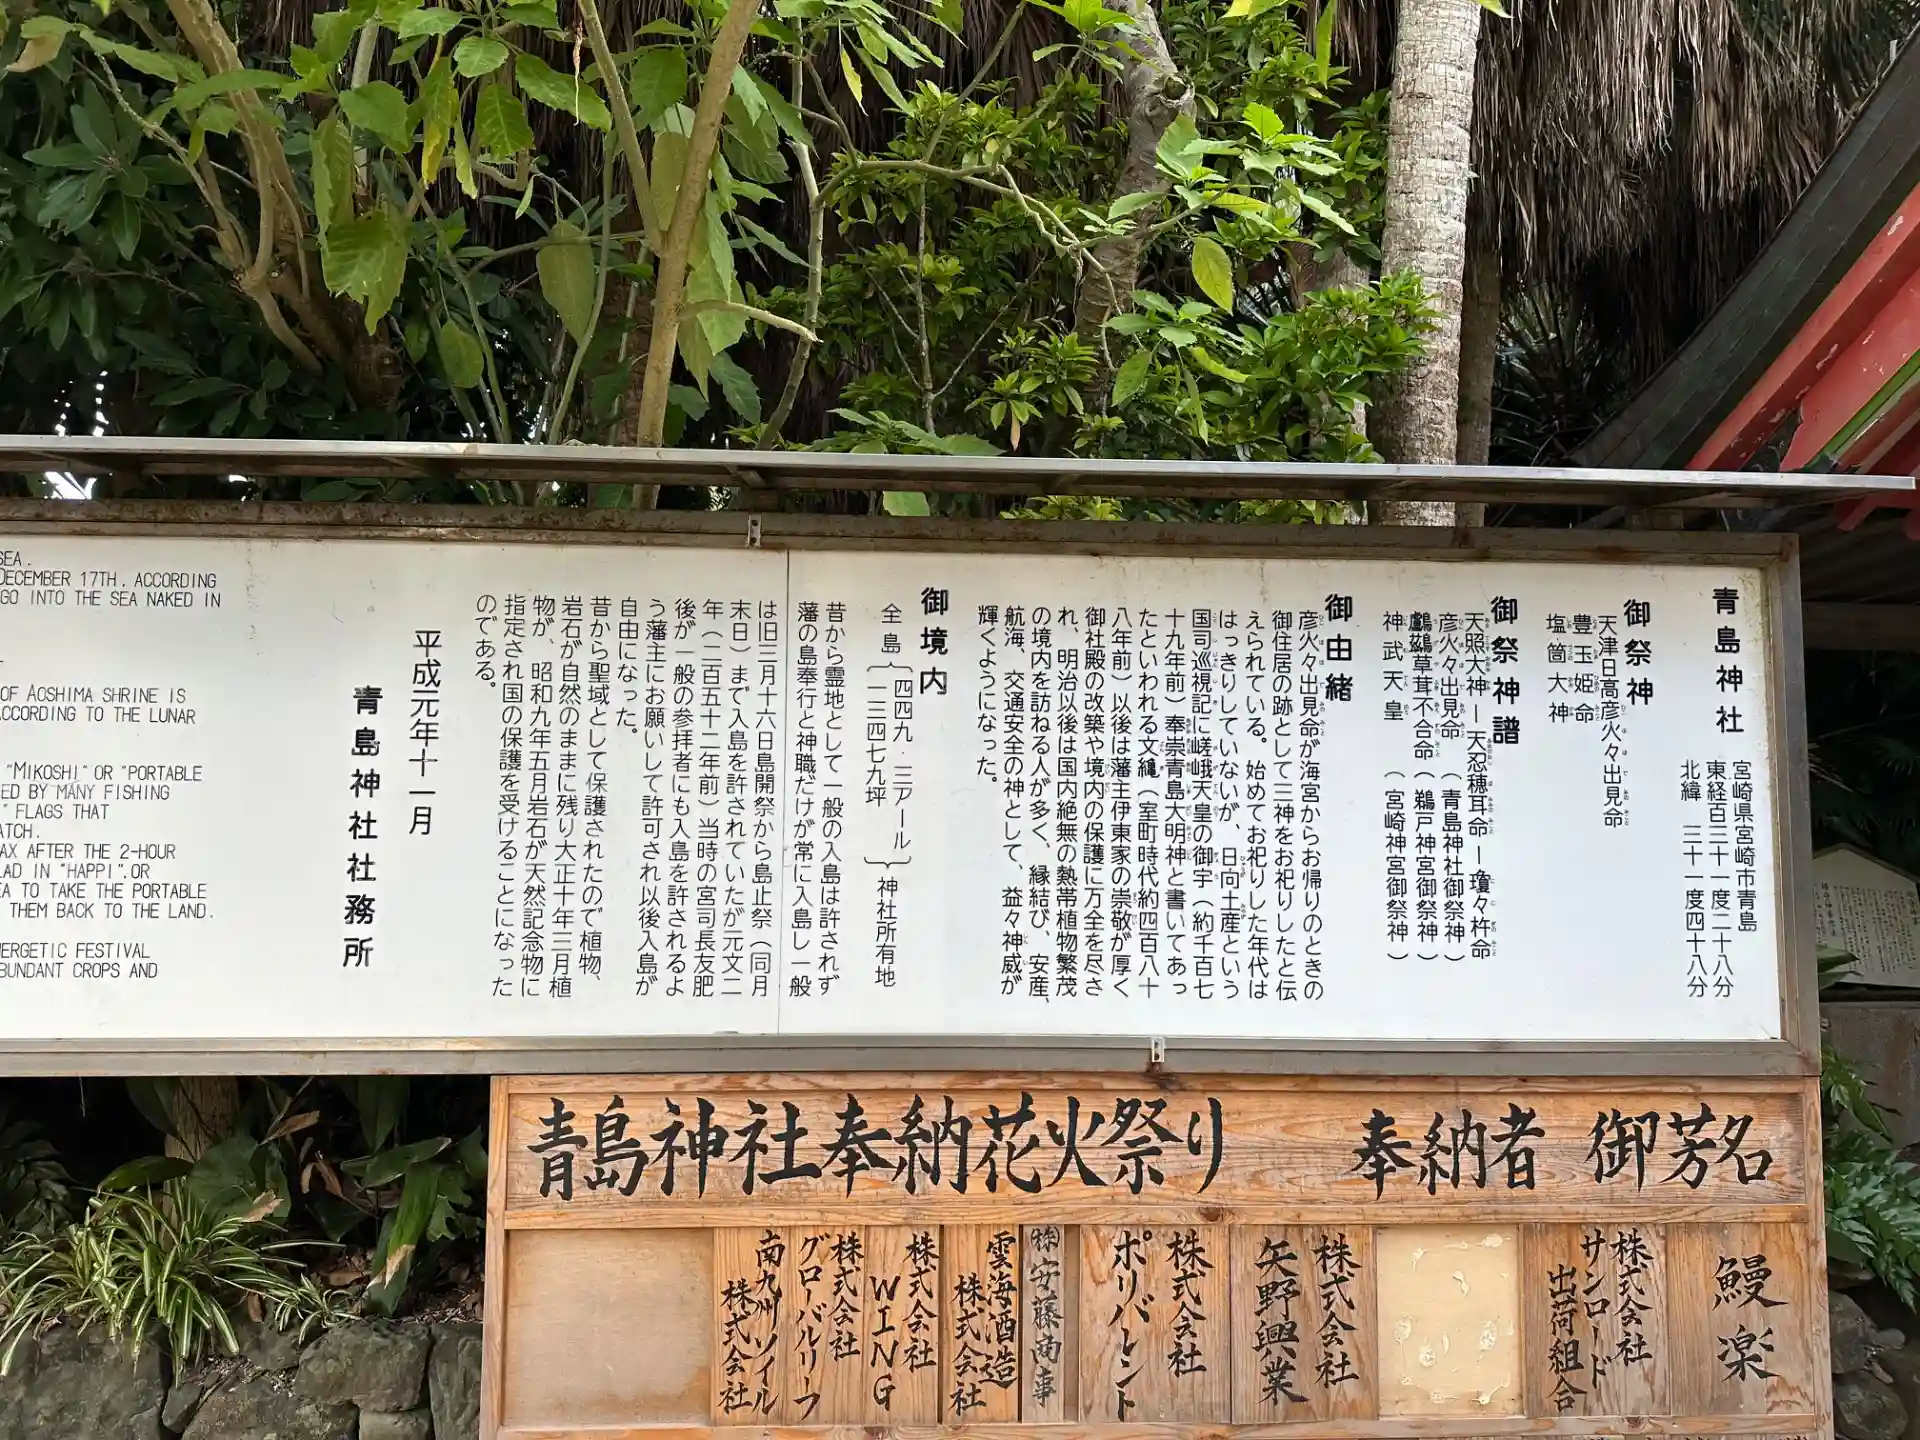 青島神社
宮崎県宮崎市青島
東経百三十一度二十八分
北緯 三十一度四十八分
御祭神
天津日高彦火々出見命
豊玉姫命
塩筒大神
御祭神譜
天照大神ー天忍穂耳命ー瓊々杵命
彦火々出見命（青島神社御祭神）
鸕鷀草茸不合命（鵜戸神宮御祭神）
神武天皇（宮崎神宮御祭神）
御由緒
彦火々出見命が海宮からお帰りのときの
御住居の跡として三神をお祀りしたと伝
えられている。始めてお祀りした年代は
はっきりしていないが、日向土産という
国司巡視記に嵯峨天皇の御宇（約千百七
十九年前）奉崇青島大明神と書いてあっ
たといわれる文亀（室町時代約四百八十
八年前）以後は藩主伊東家の崇敬が厚く
御社殿の改築や境内の保護に万全を尽さ
れ、明治以後は国内絶無の熱帯植物繁茂
の境内を訪ねる人が多く、縁結び、安産、
航海、交通安全の神として、益々神威が
輝くようになった。
御境内
全島｛四四九・三アール
一三四七九坪｝神社所有地
昔から霊地として一般の入島は許されず
藩の島奉行と神職だけが常に入島し一般
は旧三月十六日島開祭から島止祭（同月
末日）まで入島を許されていたが元文二
年（二百五十二年前）当時の宮司長友肥
後が一般の参拝者にも入島を許されるよ
う藩主にお願いして許可され以後入島が
自由になった。
昔から聖域として保護されたので植物、
岩石が自然のままに残り大正十年三月植
物が、昭和九年五月岩石が天然記念物に
指定され国の保護を受けることになった
のである。
平成元年十一月
青島神社社務所
SEA.
DECEMBER 17TH. ACCORDING
GO INTO THE SEA NAKED IN
OF AOSHIMA SHRINE IS
ACCORDING TO THE LUNAR
"MIKOSHI" OR "PORTABLE
ED BY MANY FISHING
" FLAGS THAT
ATCH.
AX AFTER THE 2-HOUR
LAD IN "HAPPI".OR
EA TO TAKE THE PORTABLE
THEM BACK TO THE LAND.
NERGETIC FESTIVAL
BUNDANT CROPS AND
青島神社奉納花火祭り 奉納者 御芳名
鰻楽
株式会社
サンロード
出荷組合
株式会社
矢野興業
株式会社
ポリバレント
㈱安藤商事
雲海酒造
株式会社
株式会社
WING
株式会社
グローバルリーフ
南九州ソイル
株式会社